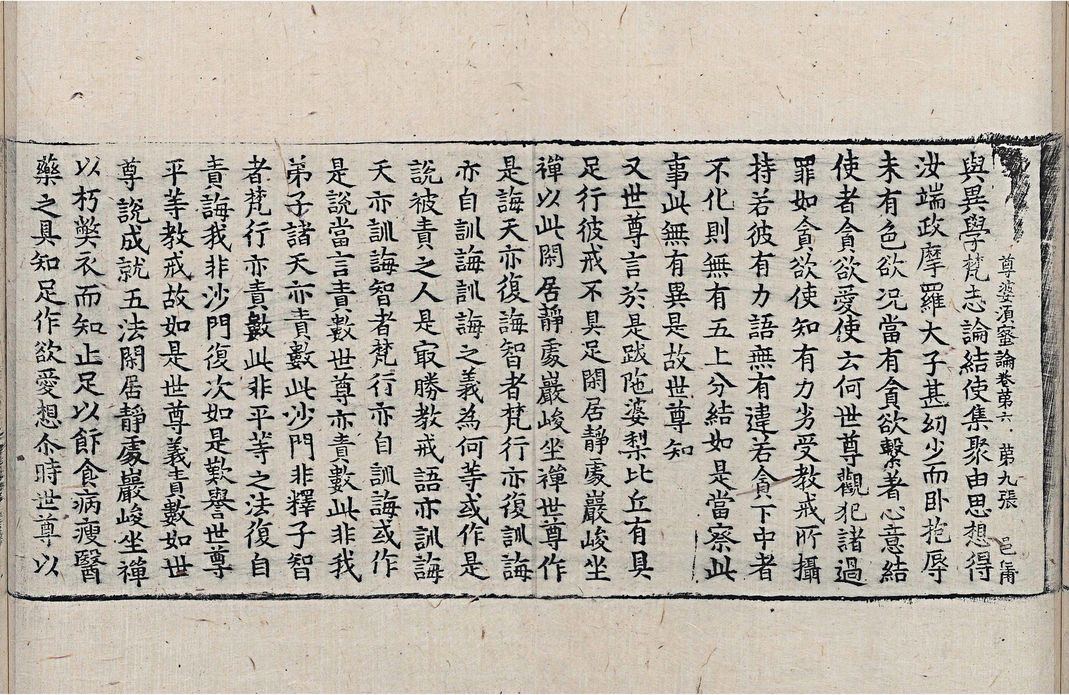 尊婆須蜜論卷第六 第九張 邑
與異學梵志論結使集聚由思想得
汝端政摩羅大子甚幼少而卧抱辱
未有色欲况當有貪欲繫著心意結
使者貪欲愛使云何世尊觀犯諸過
罪如貪欲使知有力劣受教戒所攝
持若彼有力語無有違若貪下中者
不化則無有五上分結如是當察此
事此無有異是故世尊知
又世尊言於是跋陁婆梨比丘有具
足行彼戒不具足閑居靜處巖峻坐
禪以此閑居靜處巖峻坐禪世尊作
是誨天亦復誨智者梵行亦復訓誨
亦自訓誨訓誨之義為何等或作是
說被責之人是寂勝教戒語亦訓誨
天亦訓誨智者梵行亦自訓誨或作
是說當言責數世尊亦責數此非我
弟子諸天亦責數此沙門非釋子智
者梵行亦責數此非平等之法復自
責誨我非沙門復次如是歎譽世尊
平等教戒故如是世尊義責數如世
尊說成就五法閑居靜處巖峻坐禪
以朽弊衣而知止足以飮食病瘦醫
藥之具知足作欲愛想尒時世尊以